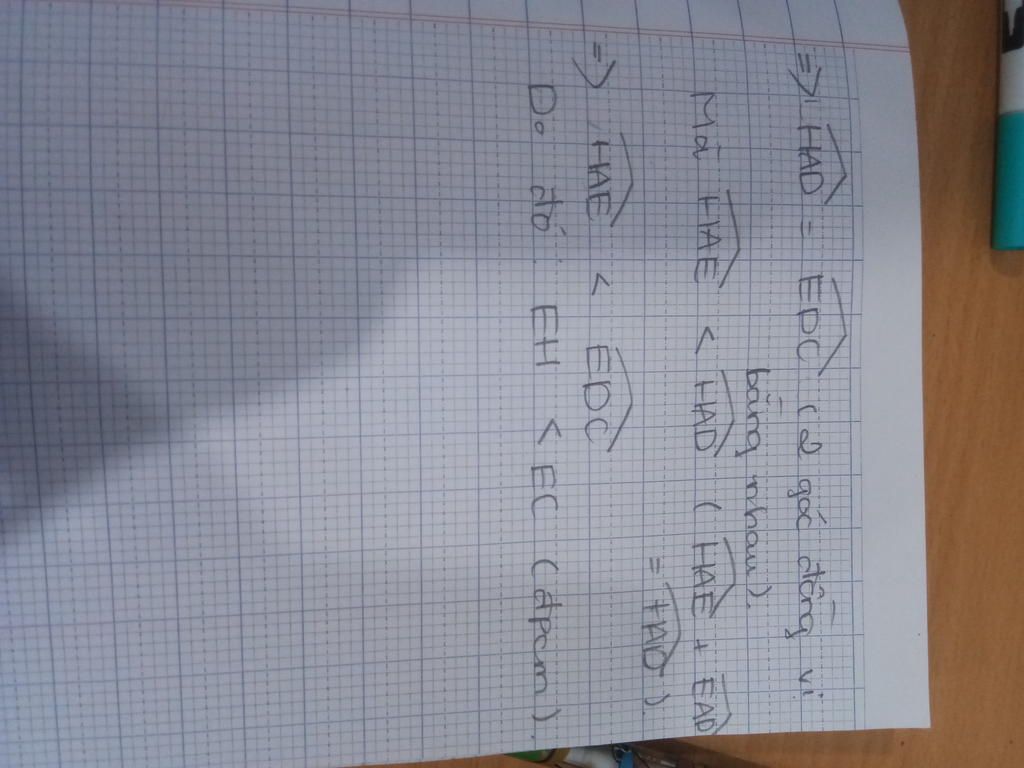 => HAD = EDC ( 2 góc đồng vị
bằng nhau).
Mà HAE < HAD ( HAE + EAD
= HAD ).
=> HAE < EDC
Do đó EH < EC ( đpcm ).